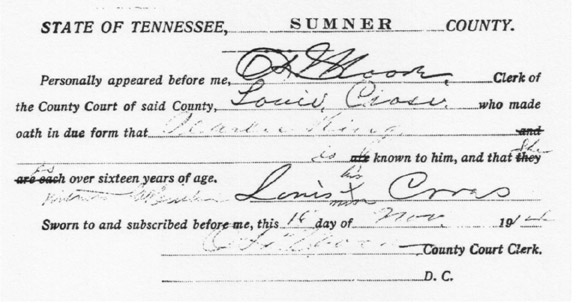 STATE OF TENNESSEE, SUMNER COUNTY.
Personally appeared before me, Clerk of
the County Court of said County, Louis, Cross. who made
oath in due form that King and
is are known to him, and that they she
are each is over sixteen years of age.
his
Louis X Cross
mark
Sworn to and subscribed before me, this 16 day of Nov 191
County Court Clerk.
D. C.